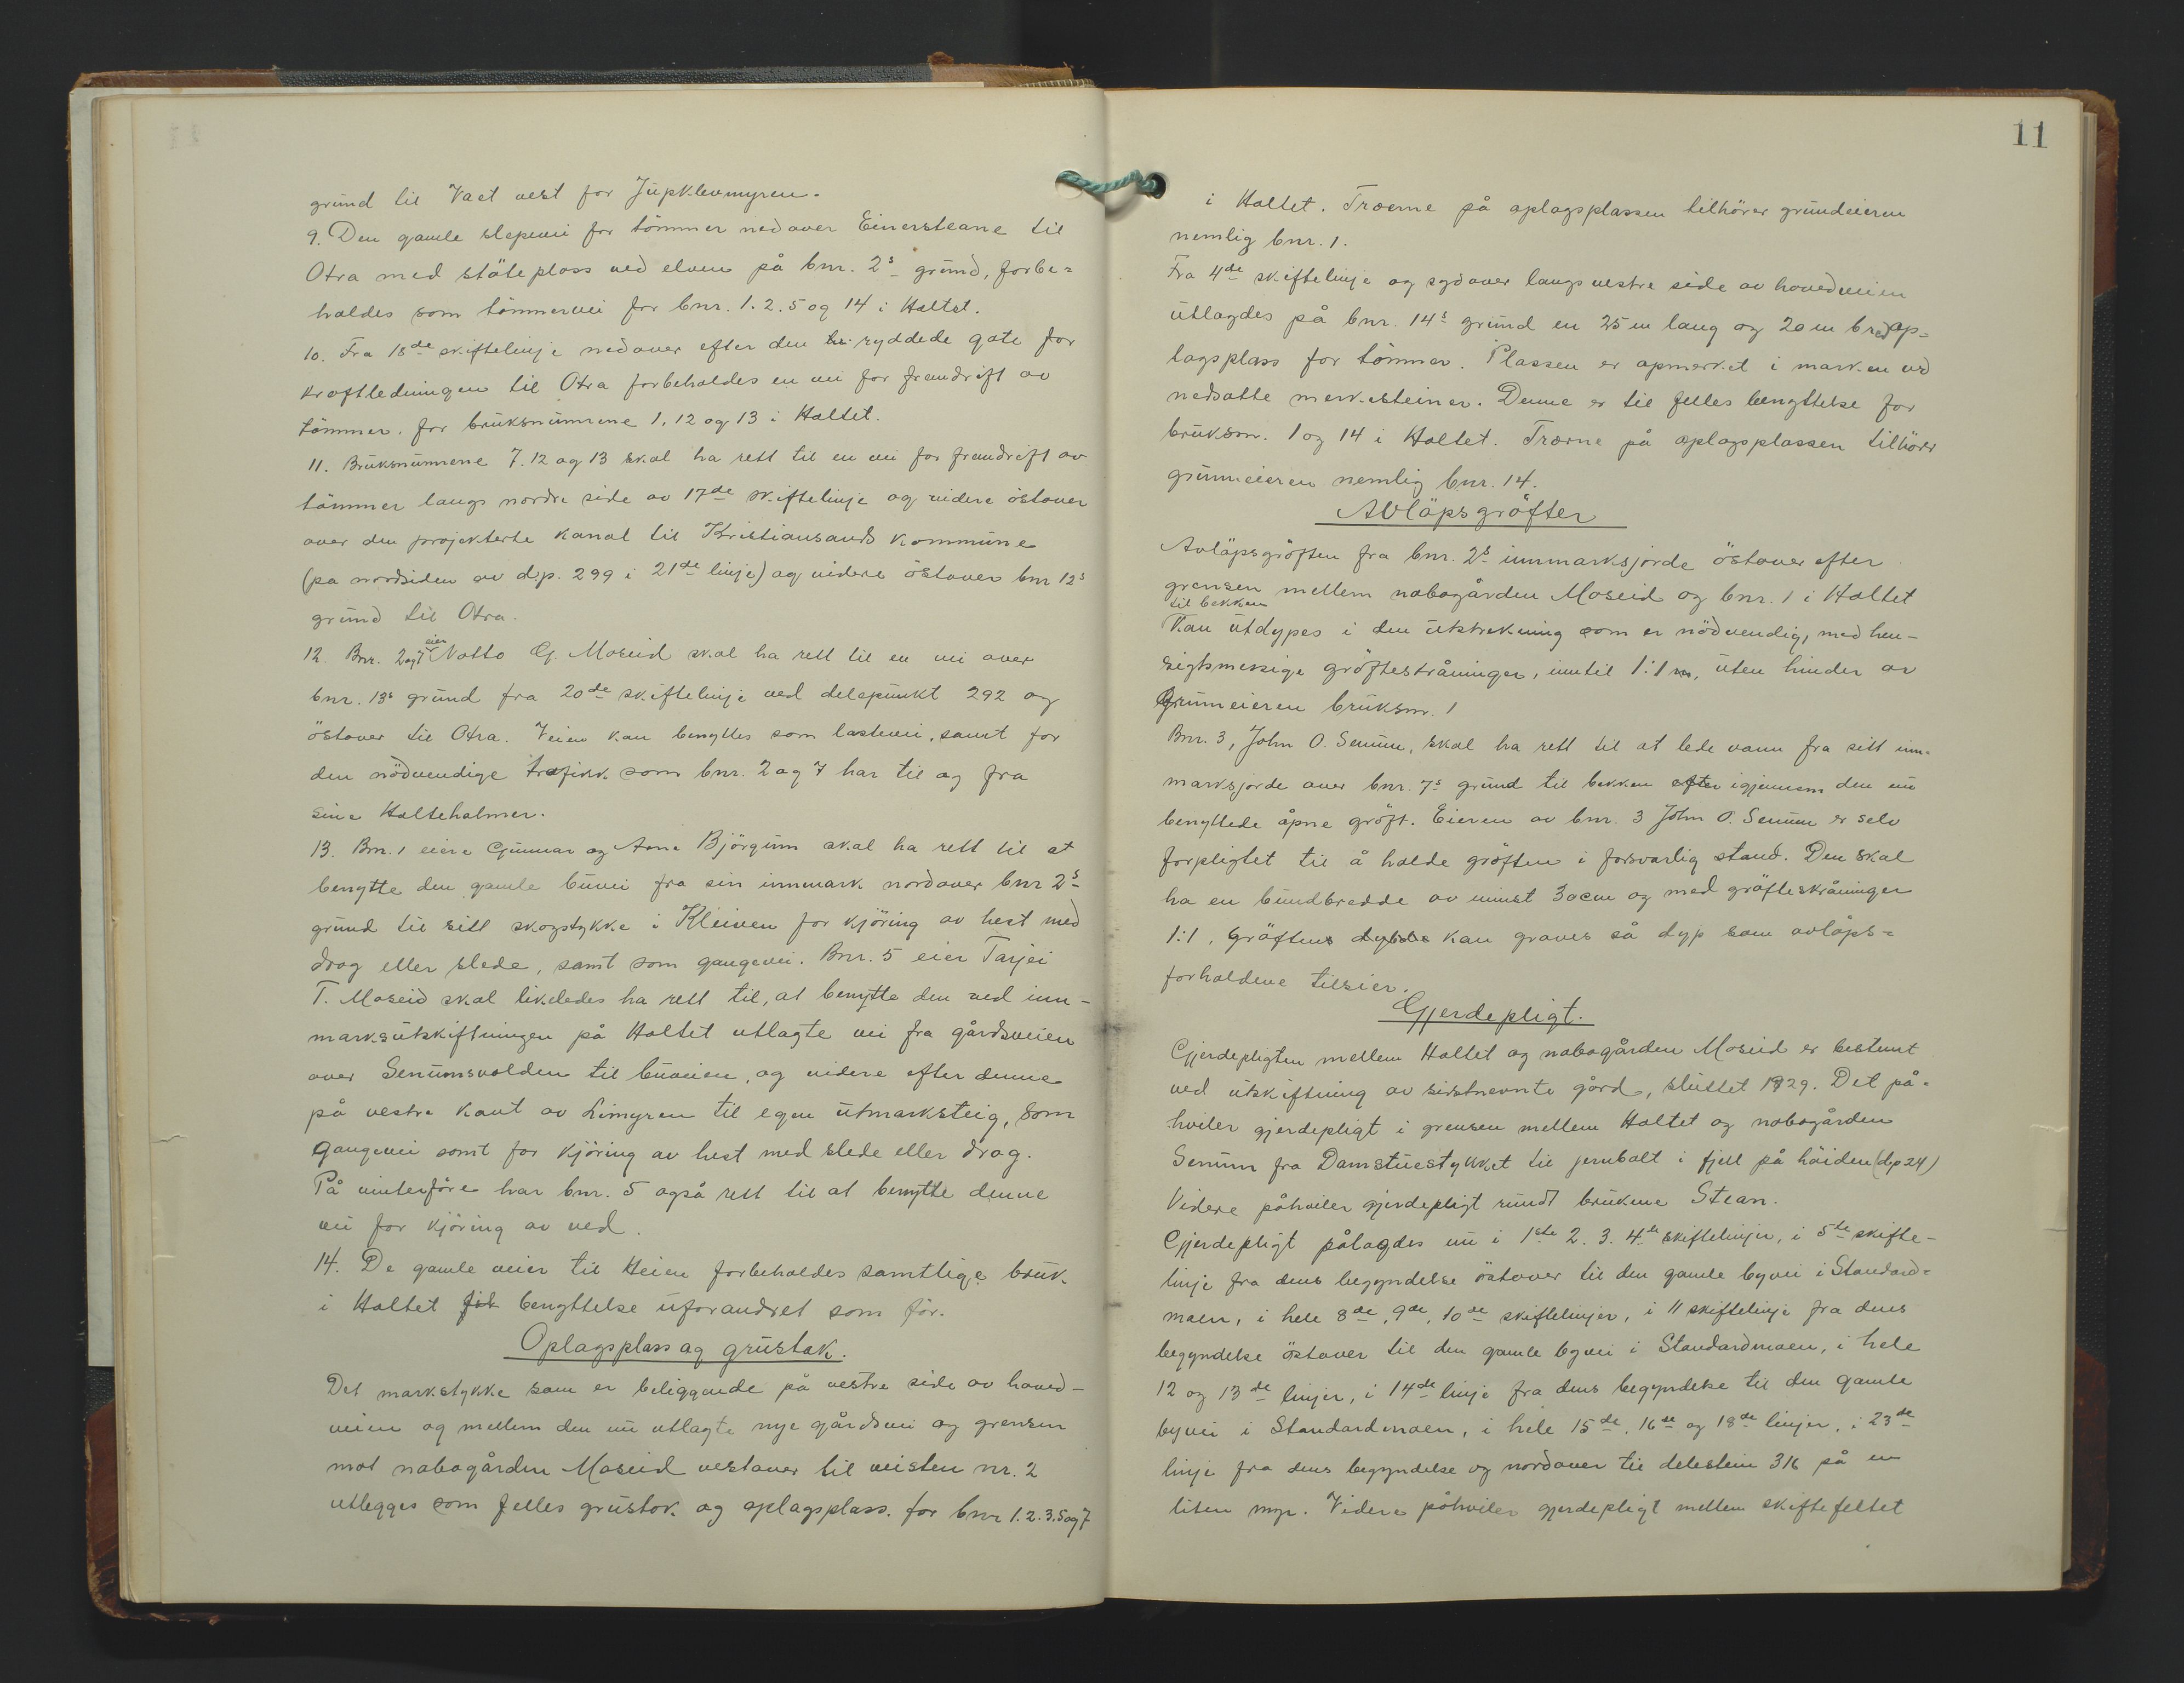 grund til Vaet vest for Jupklevmyren.
9. Den gamle slepevei for tömmer nedover Einersteane til
Otra med stöteplass ved elven på bnr. 2s grund, forbe=
holdes som tömmervei for bnr. 1. 2. 5 og 14 i Haltet.
10. Fra 18de skiftelinje nedover efter den ryddede gate for
kraftledningen til Otra forbeholdes en vei for fremdrift av
tömmer. for bruksnumrene 1, 12 og 13 i Haltet.
11. Bruksnumrene 7. 12 og 13 skal ha rett til en vei for fremdrift av
tömmer langs nordre side av 17de skiftelinje og videre östover
over den projekterte kanal til Kristiansands kommune
(pa nordsiden av d.p. 299 i 21de linje) og videre östover bnr 12s
grund til Otra.
12. Bnr. 2 og 7 eier Notto G. Moseid skal ha rett til en vei over
bnr. 13s grund fra 20de skiftelinje ved delepunkt 292 og
östover til Otra. Veien kan benyttes som lastevei, samt for
den nödvendige trafikk som bnr. 2 og 7 har til og fra
sine Halteholmer.
13. Bnr. 1 eiere Gunnar og Anna Björgum skal ha rett til at
benytte den gamle buvei fra sin innmark nordover bnr 2s
grund til sitt skogstykke i Kleiven for kjöring av hest med
drag eller slede, samt som gangevei. Bnr. 5 eier Tarjei
T. Moseid skal likeledes ha rett til, at benytte den ved inn-
marksutskiftningen på Haltet utlagte vei fra gårdsveien
over Senumsvolden til buveien, og videre efter denne
på vestre kant av Limyren til egen utmarksteig, som
gangevei samt for kjöring av hest med slede eller drag.
På vinterföre har bnr. 5 også rett til at benytte denne
vei for kjöring av ved.
14. De gamle veier til Heien forbeholdes samtlige bruk
i Haltet fit benyttelse uforandret som för.
Oplagsplass og grustak.
Det markstykke som er beliggende på vestre side av hoved-
veien og mellem den nu utlagte nye gårdsvei og grensen
mot nabogården Moseid vestover til veisten nr. 2
utlegges som felles grustak og oplagsplass. for bnr 1. 2. 3. 5 og 7
11
i Haltet. Trærne på oplagsplassen tilhörer grundeieren
nemlig bnr. 1.
Fra 4de skiftelinje og sydover langs vestre side av hovedveien
utlagdes på bnr. 14s grund en 25 m lang og 20 m bred op=
lagsplass for tömmer. Plassen er opmerket i marken ved
nedsatte merkesteiner. Denne er til felles benyttelse for
bruksnr. 1 og 14 i Haltet. Trærne på oplagsplassen tilhörer
grunneieren nemlig bnr. 14.
Avlöpsgröfter
Avlöpsgröften fra bnr. 2s innmarksjorde östover efter
grensen mellem nabogården Moseid og bnr. 1 i Haltet
til bekken
kan utdypes i den utstrekning som er nödvendig, med hen-
sigtsmessige gröftestråninger, inntil 1:1 m, uten hinder av
grunneieren bruksnr. 1
Bnr. 3, John O. Senum, skal ha rett til at lede vann fra sitt inn-
marksjorde over bnr. 7s grund til bekken efter igjennem den nu
benyttede åpne gröft. Eieren av bnr. 3 John O. Senum er selv
forpligtet til å holde gröften i forsvarlig stand. Den skal
ha en bundbredde av minst 30cm og med gröfteskråninger
1:1. Gröftens dybde kan graves så dyp som avlöps=
forholdene tilsier.
Gjerdepligt.
Gjerdepligten mellem Haltet og nabogården Moseid er bestemt
ved utskiftning av sistnevnte gård, sluttet 1929. Det på-
hviler gjerdepligt i grensen mellem Haltet og nabogården
Senum fra Damstuestykket til jernbolt i fjell på höiden (dp 24)
Videre påhviler gjerdepligt rundt brukene Stean.
Gjerdepligt pålagdes nu i 1ste 2. 3. 4de skiftelinjer, i 5te skifte-
linje fra dens begyndelse östover til den gamle byvei i Standard-
moen, i hele 8de, 9de, 10de skiftelinjer, i 11 skiftelinje fra dens
begyndelse östover til den gamle byvei i Standardmoen, i hele
12 og 13de linjer, i 14de linje fra dens begyndelse til den gamle
byvei i Standardmoen, i hele 15de, 16de og 18de linjer, i 23de
linje fra dens begyndelse og nordover til delestein 316 på en
liten myr. Videre påhviler gjerdepligt mellem skiftefeltet